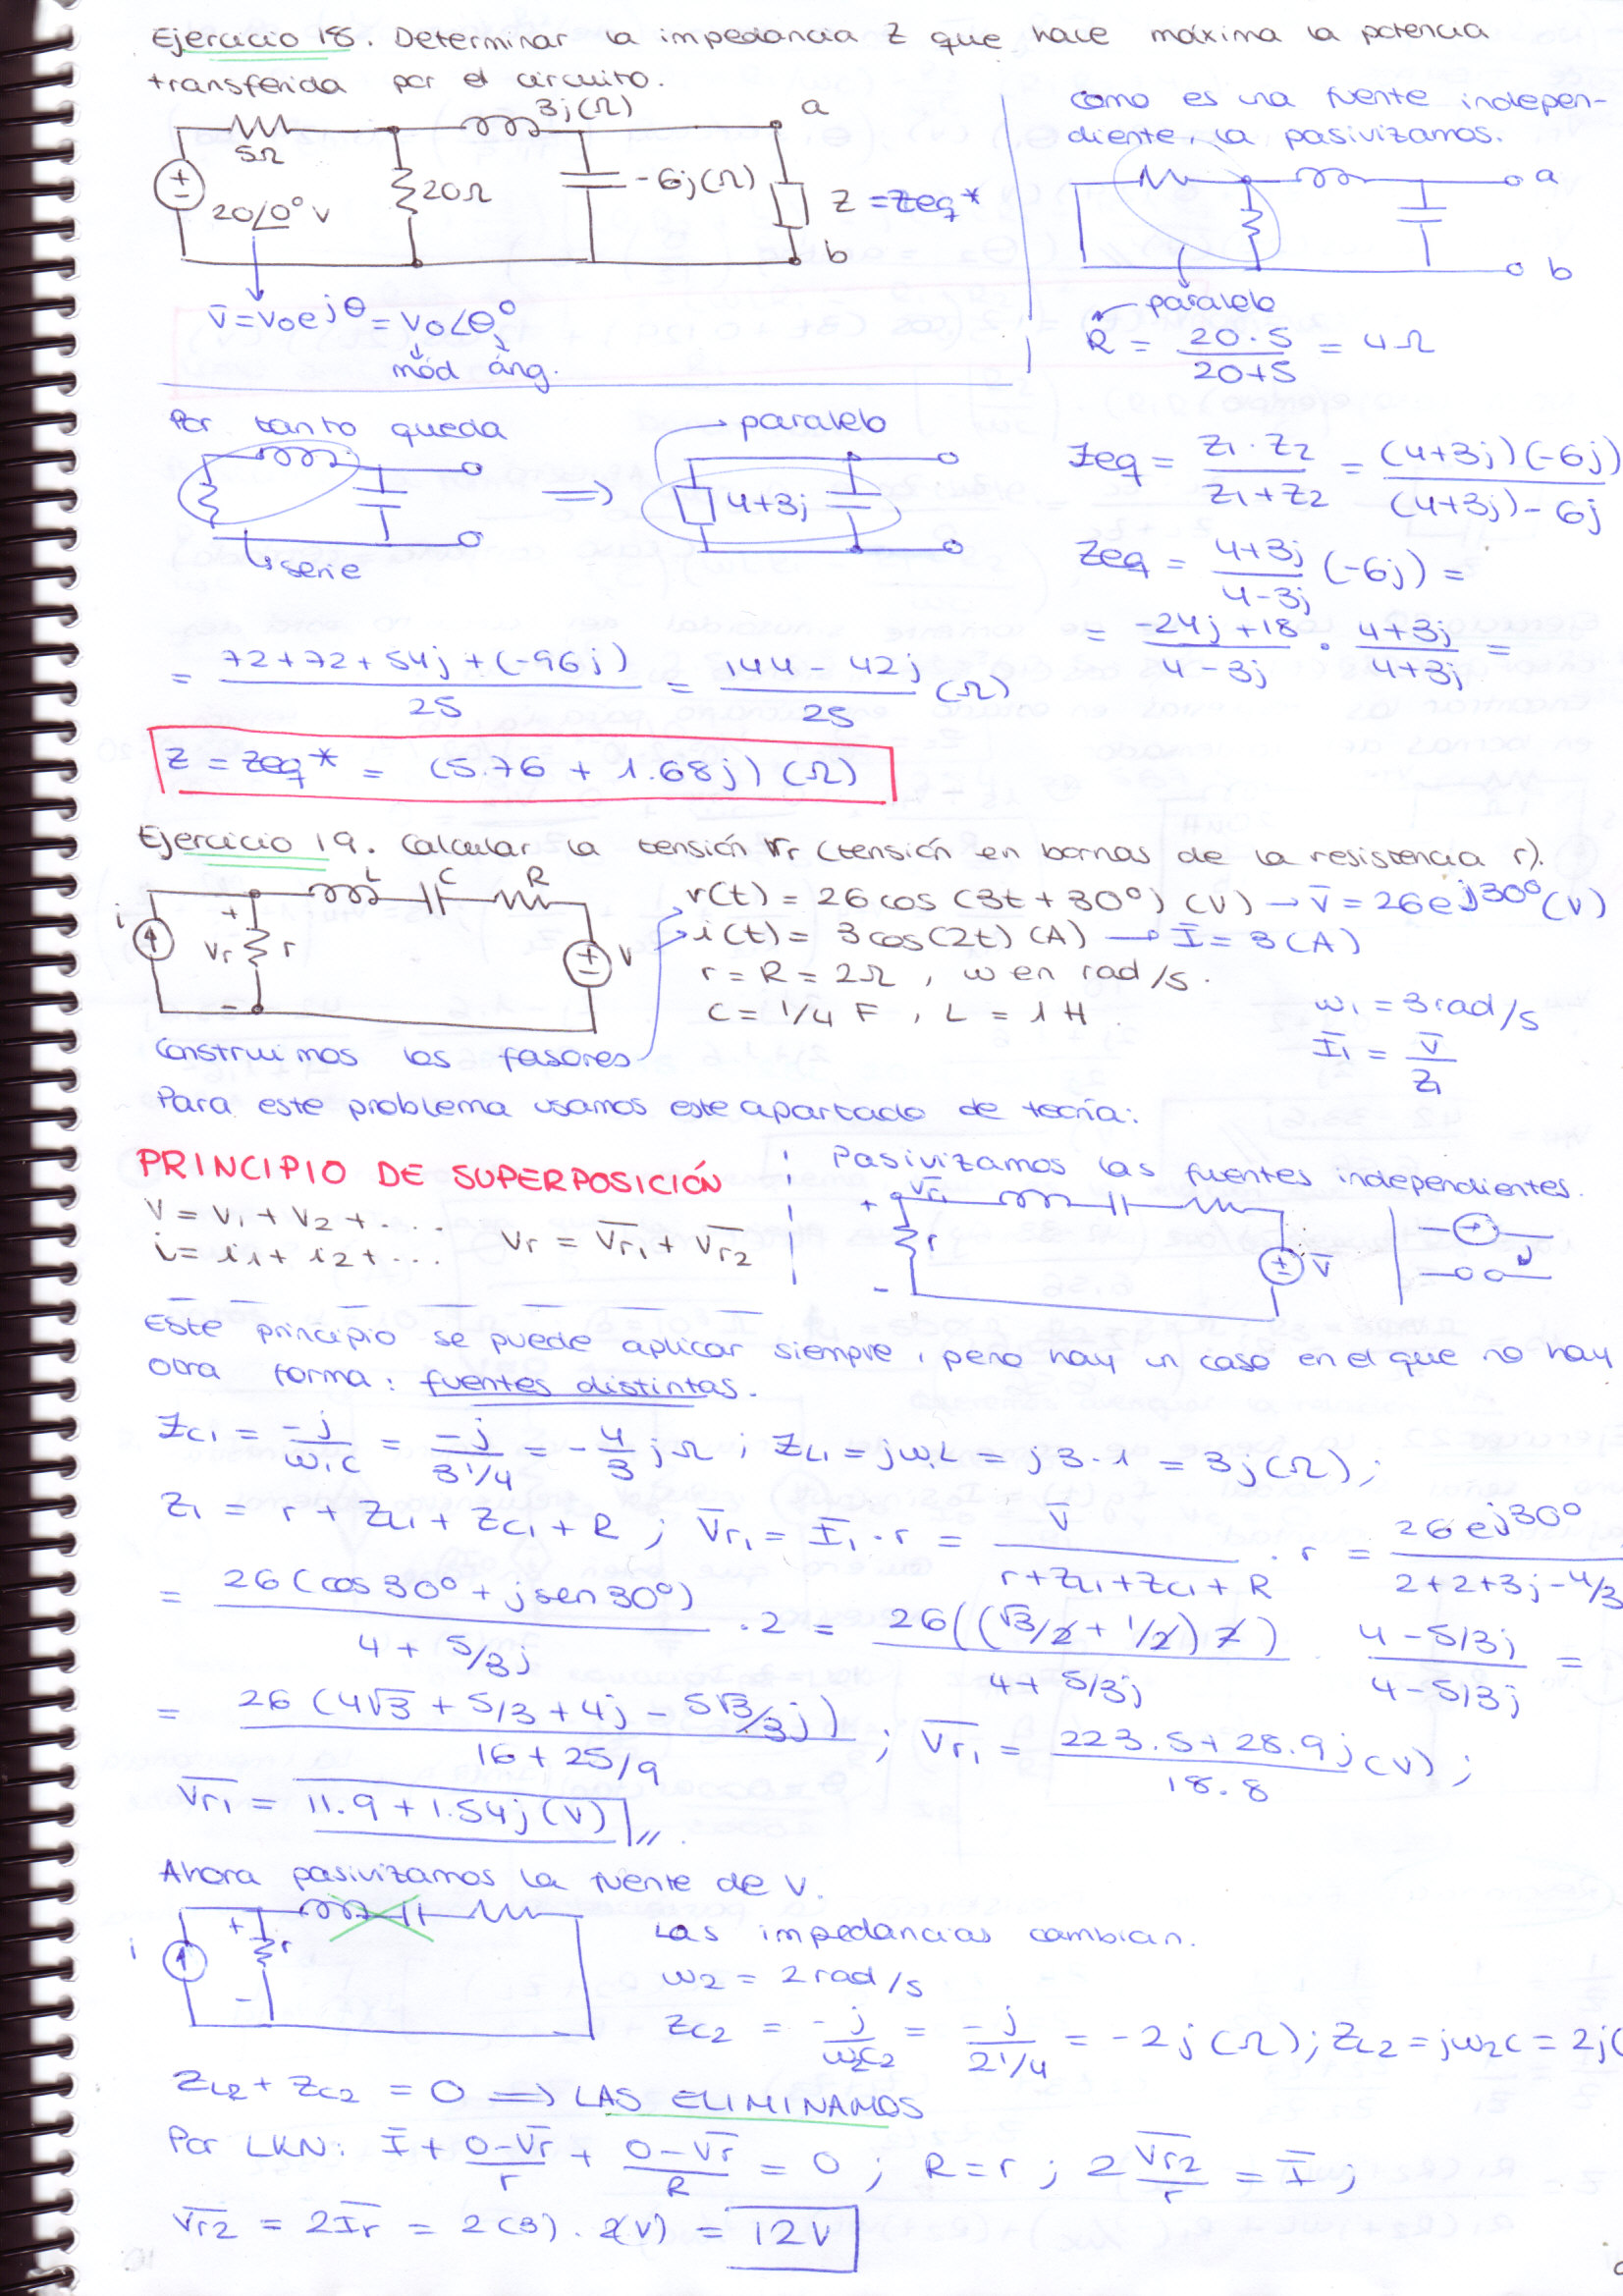 Ejercicio 18. Determinar la impedancia Z que hace máxima la potencia
transferida por el circuito.
5Ω
3j(Ω)
a
20Ω
-6j(Ω)
Z = Zeq*
20/0° V
b
V̅ = V₀e^jθ = V₀∠θ°
mód áng.
como es una fuente indepen-
diente, la pasivizamos.
a
b
paralelo
R = 20·5/20+5 = 4Ω
Por tanto queda
serie
⟹
paralelo
4+3j
Zeq = Z₁·Z₂/Z₁+Z₂ = (4+3j)(-6j)/(4+3j)-6j
Zeq = 4+3j/4-3j (-6j) =
= -24j+18/4-3j · 4+3j/4+3j =
= 72+72+54j+(-96j)/25 = 144-42j/25 (Ω)
Z = Zeq* = (5.76 + 1.68j) (Ω)
Ejercicio 19. Calcular la tensión Vr (tensión en bornas de la resistencia r).
i
+
Vr
-
r
L
C
R
V
v(t) = 26 cos (3t + 30°) (V) → V̅ = 26e^j30° (V)
i(t) = 3cos(2t) (A) → I̅ = 3 (A)
r = R = 2Ω , ω en rad/s.
C = 1/4 F , L = 1 H
ω₁ = 3 rad/s
I̅₁ = V̅/Z₁
Construimos los fasores
Para este problema usamos este apartado de teoría:
PRINCIPIO DE SUPERPOSICIÓN
V = V₁ + V₂ + ....
i = i₁ + i₂ + ...
Vr = V̅r₁ + V̅r₂
Pasivizamos las fuentes independientes.
+
V̅r₁
r
-
V̅
Este principio se puede aplicar siempre, pero hay un caso en el que no hay
otra forma: fuentes distintas.
Zc₁ = -j/ω₁c = -j/3 1/4 = -4/3 jΩ ; ZL₁ = jω₁L = j3·1 = 3j(Ω);
Z₁ = r + ZL₁ + ZC₁ + R ; V̅r₁ = I̅₁·r = V̅/r+ZL₁+ZC₁+R · r = 26e^j30°/2+2+3j-4/3
= 26(cos30° + jsen30°)/4 + 5/3j · 2 = 26((√3/2 + 1/2)2)/4+5/3j · 4-5/3j/4-5/3j =
= 26(4√3 + 5/3 + 4j - 5√3/3j)/16+25/9 ; V̅r₁ = 223.5+28.9j/18.8 (V) ;
V̅r₁ = 11.9 + 1.54j (V)
Ahora pasivizamos la fuente de V.
i
+
r
-
Las impedancias cambian.
ω₂ = 2 rad/s
Zc₂ = -j/ω₂c₂ = -j/2 1/4 = -2j(Ω); ZL₂ = jω₂C = 2j(
ZL₂ + ZC₂ = 0 ⟹ LAS ELIMINAMOS
Por LKN: I̅ + 0-V̅r/r + 0-V̅r/R = 0 ; R=r ; 2 V̅r₂/r = I̅ ;
V̅r₂ = 2I̅r = 2(3)·2(V) = 12V